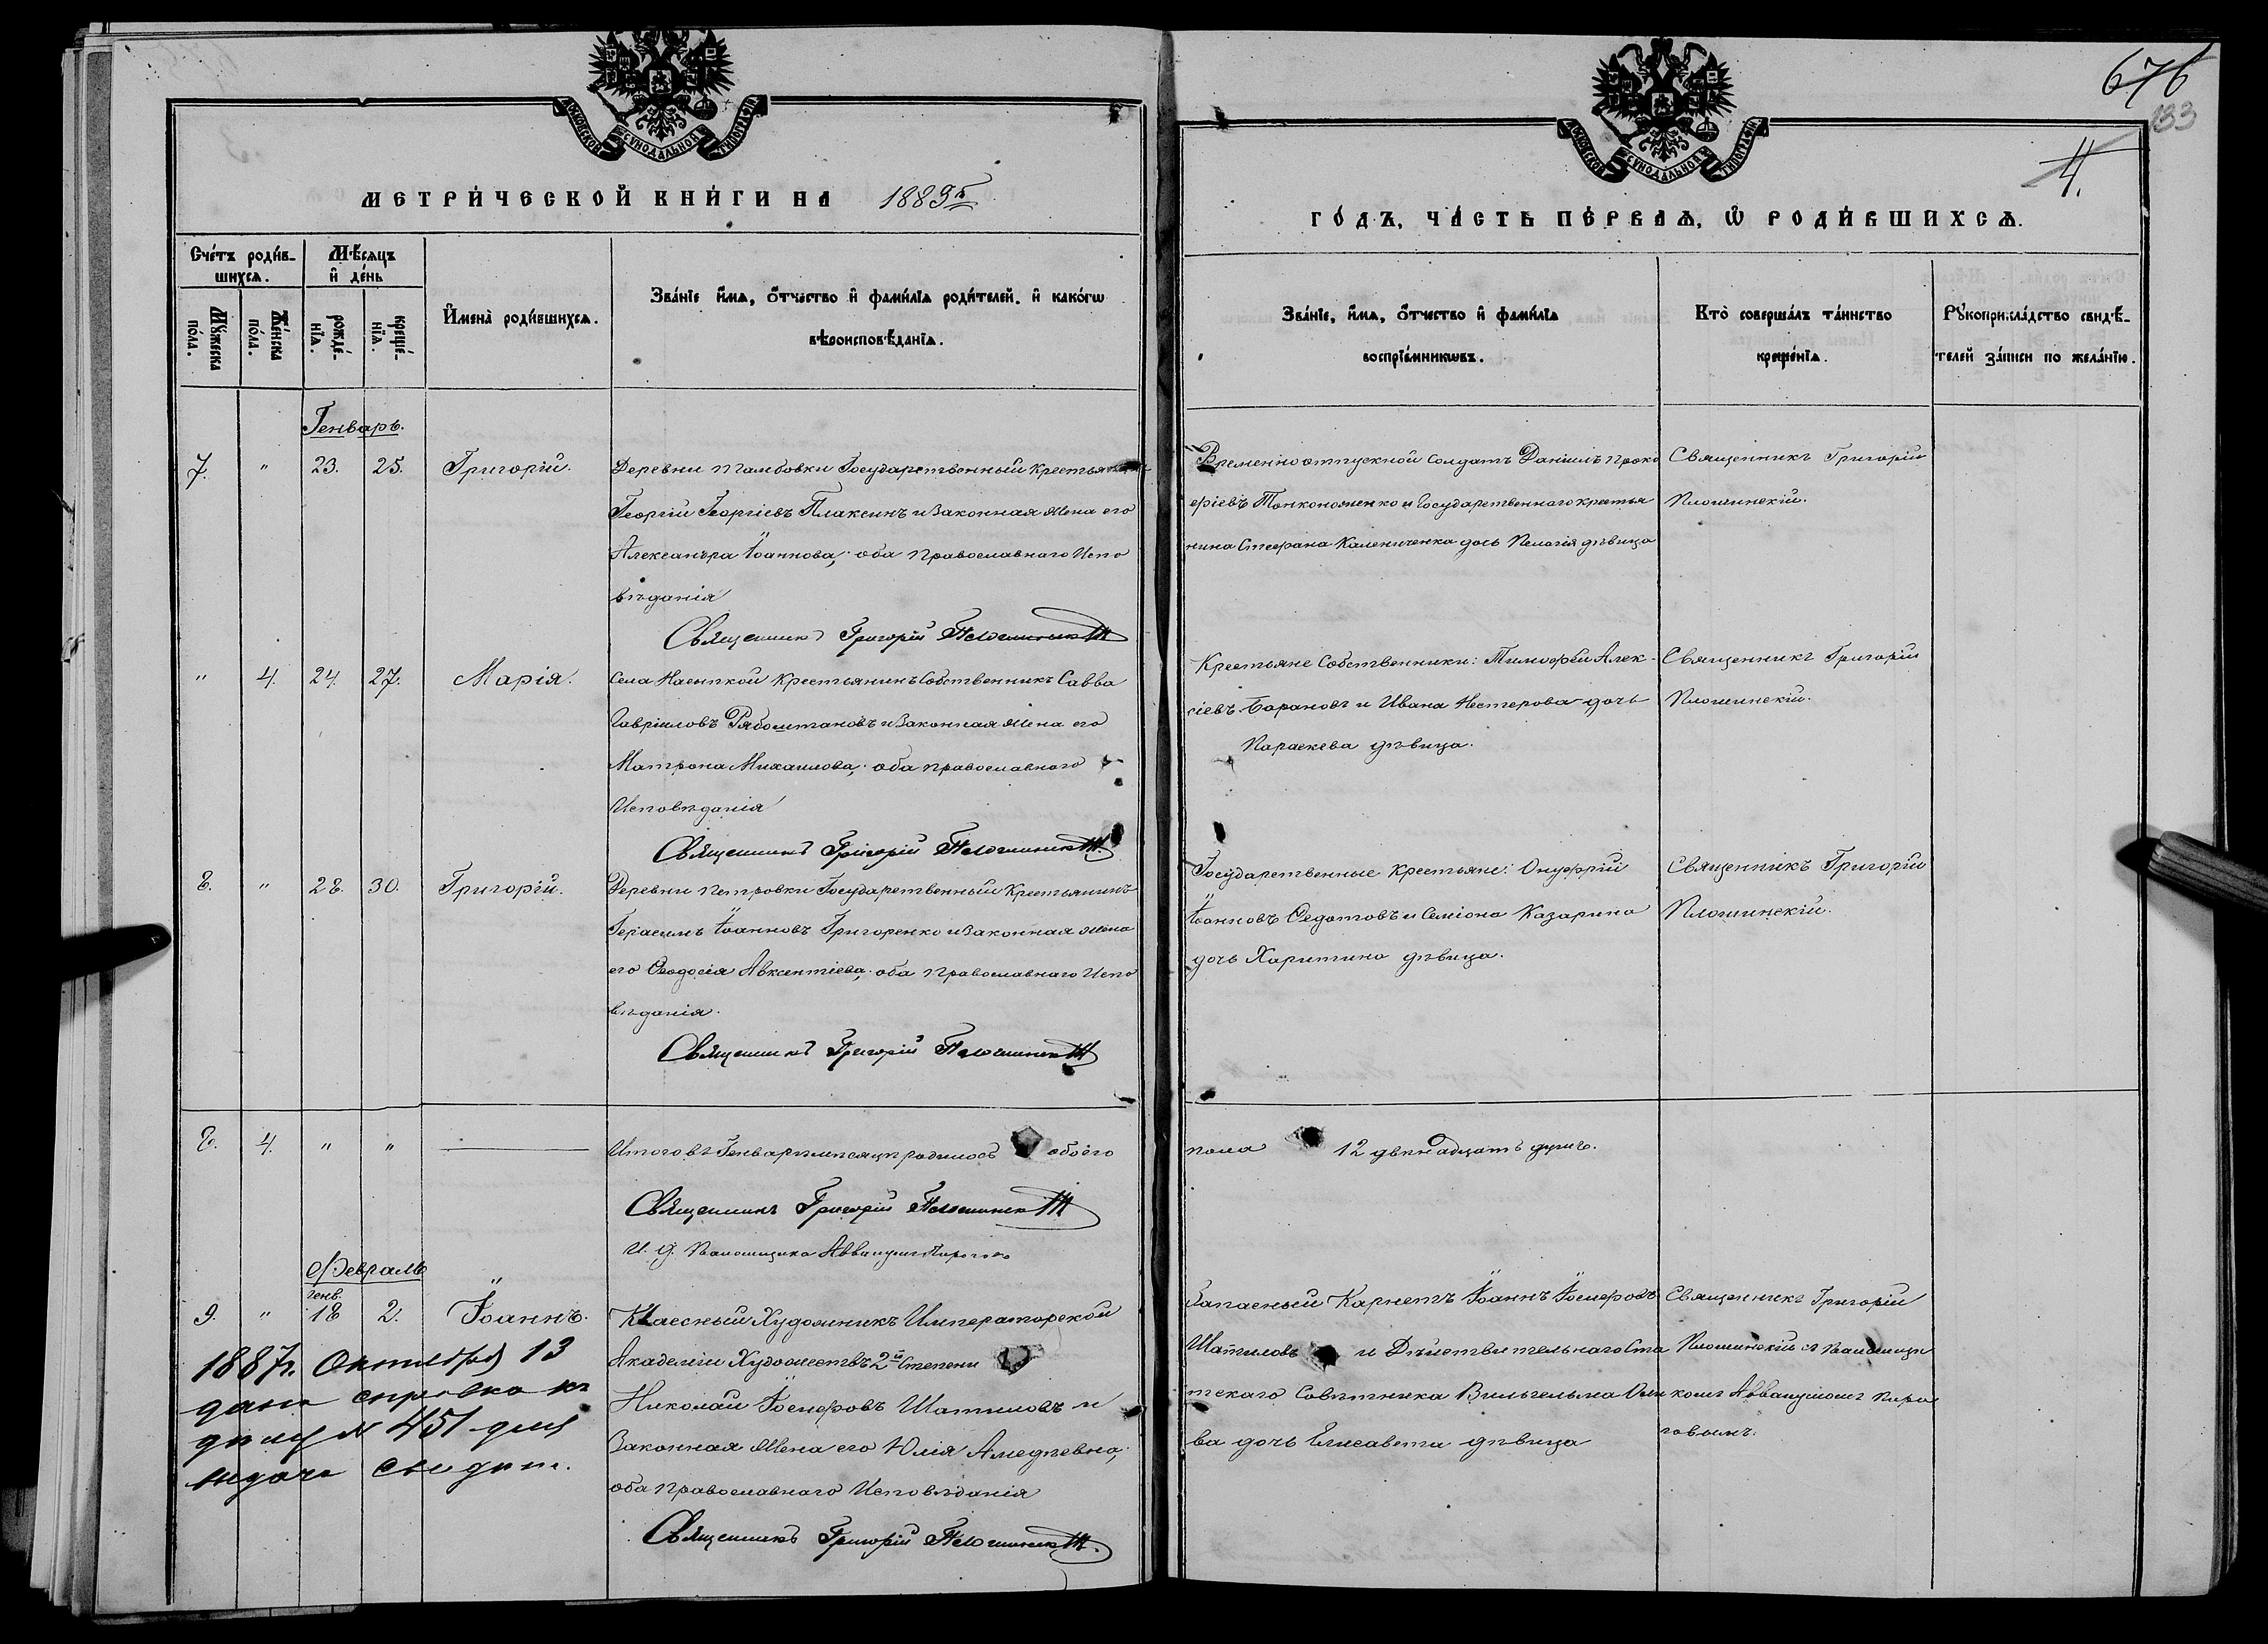 676
133
4.
МОСКОВСКОЙ СУНОДАЛЬНОЙ ТИПОГРАФІИ
МЕТРИ́ЧЕСКОЙ КНИ́ГИ НА 1883й
МОСКОВСКОЙ СУНОДАЛЬНОЙ ТИПОГРАФІИ
ГО́ДЪ, ЧА́СТЬ ПЕ́РВАѦ, Ѽ РОДИ́ВШИХСѦ.
Сче́тъ роди́в-
шихсѧ.
Мꙋ́жеска по́ла.
Же́нска по́ла.
Мѣ́сѧцъ
и҆ де́нь
рожде́-нїѧ.
креще́-нїѧ.
И҆мена̀ роди́вшихсѧ.
Зва́нїе и҆́мѧ, ѻ҆́тчество и҆ фами́лїѧ роди́телей. и҆ како́гѡ
вѣроисповѣ́данїѧ.
Зва́нїе, и҆́мѧ, ѻ҆́тчество и҆ фами́лїѧ
воспрїе́мникѡвъ.
Кто̀ соверша́лъ та́инство
креще́нїѧ.
Рꙋкоприкла́дство свидѣ́-
телей за́писи по жела́нїю.
Генварь.
7. " 23. 25. Григорій.
Деревни Тамбовки Государственный крестьянинъ
Георгій Георгіевъ Плаксинъ и законная жена его
Александра Іоаннова; оба православнаго испо
вѣданія
Священникъ Григорій Плошинскій
Временноотпускной солдатъ Даніилъ Проко
фіевъ Тонконоженко и Государственнаго крестья
нина Стефана Калениченка дочь Пелагія дѣвица
Священникъ Григорій
Плошинскій.
" 4. 24. 27. Марія.
Села Насыпкой крестьянинъ собственникъ Савва
Гавріиловъ Рябоштановъ и законная жена его
Матрона Михаилова; оба православнаго
исповѣданія
Священникъ Григорій Плошинскій
Крестьяне собственники: Тимофей Алек-
сіевъ Барановъ и Ивана Нестерова дочь
Параскева дѣвица.
Священникъ Григорій
Плошинскій.
8. " 28. 30. Григорій.
Деревни Петровки Государственный крестьянинъ
Герасимъ Іоанновъ Григоренко и законная жена
его Ѳеодосія Авксентіева; оба православнаго испо
вѣданія.
Священникъ Григорій Плошинскій
Государственные крестьяне: Онуфрій
Іоанновъ Ѳедотовъ и Семіона Казарина
дочь Харитина дѣвица.
Священникъ Григорій
Плошинскій.
8. 4. " "
Итого въ Генварѣ мѣсяцѣ родилось обоего
пола 12 двѣнадцать душъ.
Священникъ Григорій Плошинскій
И. д. Псаломщика Аввакумъ Пирогов
Февраль
9. " генв. 18 2. Іоаннъ.
Классный Художникъ Императорской
Академіи Художествъ 2й степени
Николай Іосифовъ Шатиловъ и
законная жена его Юлія Амедѣевна;
оба православнаго исповѣданія
Священникъ Григорій Плошинскій.
Запасный Карнетъ Іоаннъ Іосифовъ
Шатиловъ и Дѣйствительнаго Ста
тскаго Совѣтника Вильгельма
ва дочь Елисавета дѣвица
Священникъ Григорій
Плошинскій съ Псаломщи
комъ Аввакумомъ Пиро
говымъ.
1887г. Октября 13
дана справка къ
дѣлу № 451 для
выдачи свидѣт.